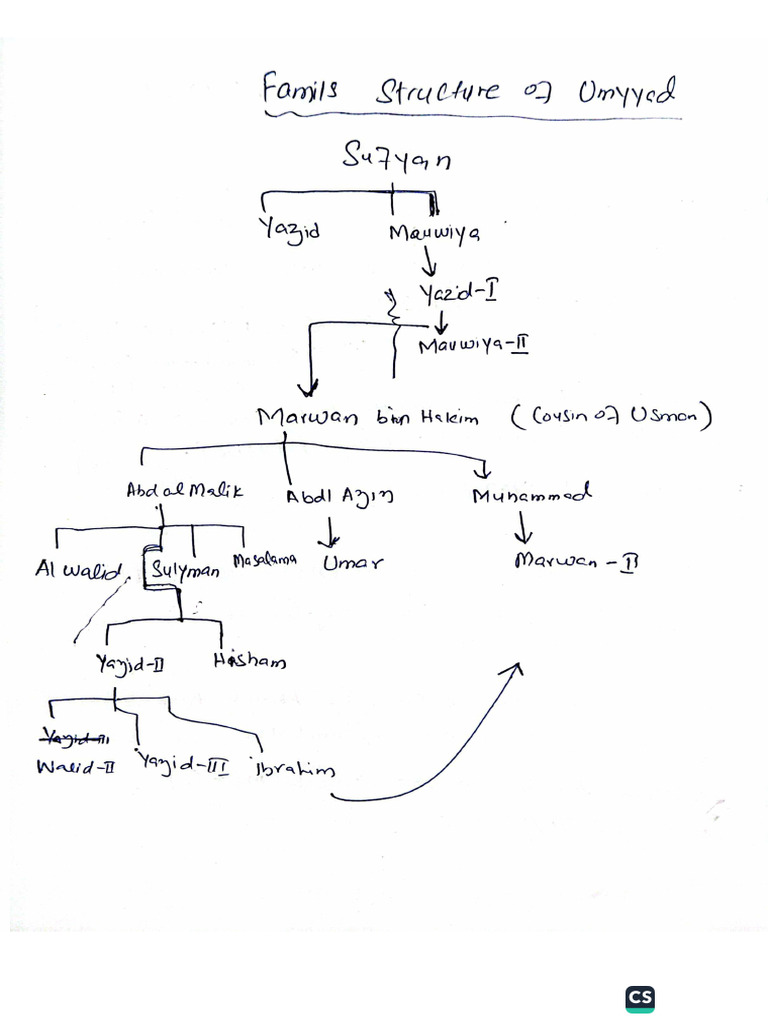 Famils Structure of Umyyad
Sufyan
Yazid Mauwiya
Yazid-I
Mauwiya-II
Marwan binn Hakim (Cousin of Usman)
Abd al Malik Abdl Aziz Muhammad
Al walid Sulyman Masalama Umar Marwan-II
Yazid-II Hisham
Yazid-III
Walid-II Yazid-III ibrahim
CS